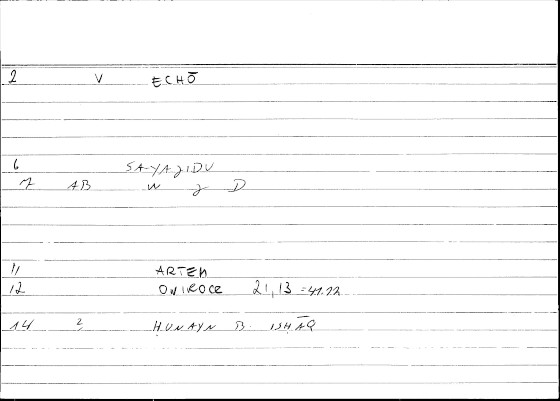 2 V ECHŌ
6 SAYAJIDU
7 AB W J D
11 ARTEM
12 ONIROCR 21,13 = 41.22
14 2, HUNAYN B. ISHĀQ